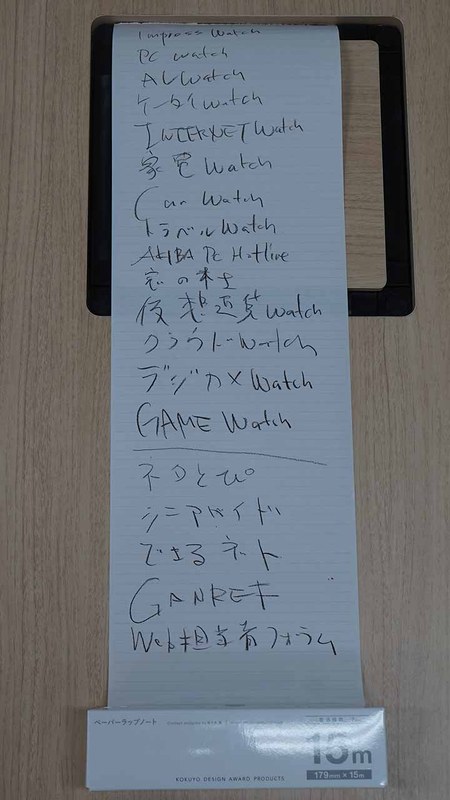 Impress Watch
PC watch
AV Watch
ケータイ watch
INTERNET Watch
家電 Watch
Car Watch
トラベル Watch
AKIBA PC Hotline
窓の杜
仮想通貨 Watch
クラウド Watch
デジカメ Watch
GAME Watch
ネタとぴ
シニアガイド
できるネット
GANREF
Web担当者フォーラム
ペーパーラップノート
15m
179mm × 15m
KOKUYO DESIGN AWARD PRODUCTS